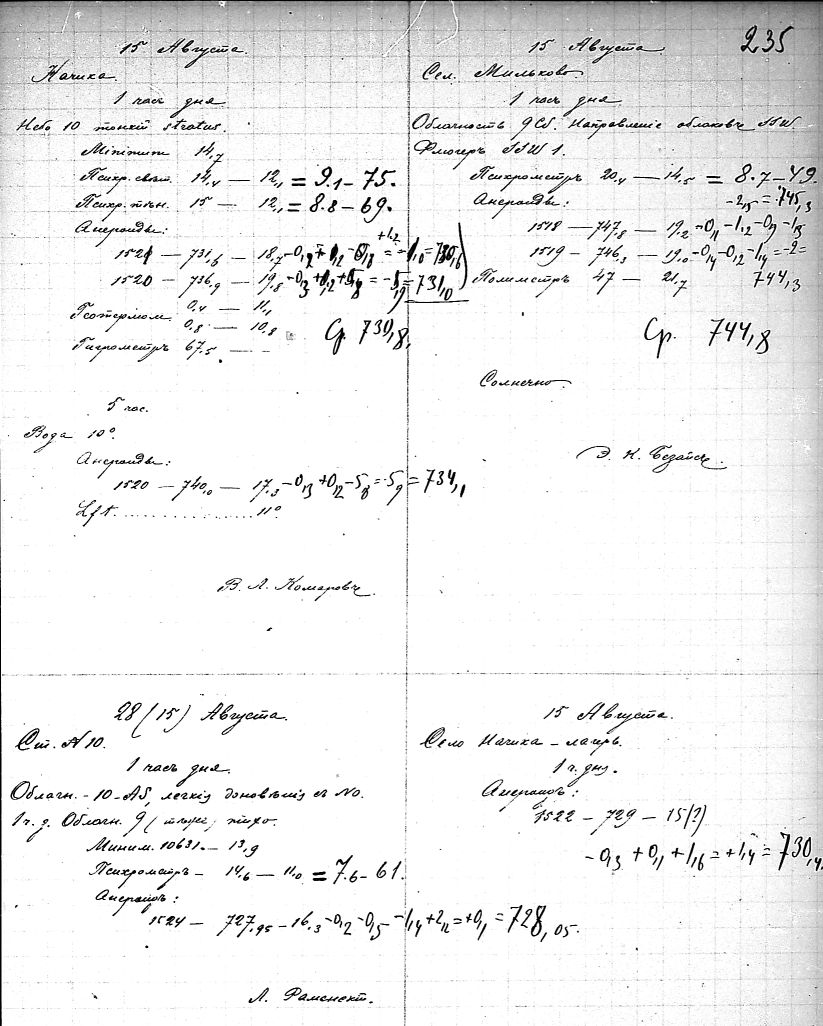 235
15 Августа.
Начика.
1 часъ дня
Небо 10 тонкій stratus.
Minimum 14,7
Психр. 14,4 — 12,1 = 9.1 – 75.
Психр. 15 — 12,1 = 8.8 – 69.
Анероиды:
1521 — 731,6 — 18,7
1520 — 736,9 — 19,8 = 731,0
Геотермом. 0,4 — 11,1
0,8 — 10,8
Гигрометръ 67,5 —
Ср. 730,8.
5 час.
Вода 10°.
Анероиды:
1520 — 740,0 — 17,3 – 0,3 + 0,2 – 5,8 = – 5,9 = 734,1
Lft. .................. 11°
В. Л. Комаровъ.
15 Августа
Сел. Мильково
1 часъ дня
Облачность 9 Cб. Направленіе облаковъ SSW.
Флюгеръ SSW 1.
Психрометръ 20,4 — 14,5 = 8.7 – 49.
Анероиды: – 2,5 = 745,3
1518 — 747,8 — 19,2
1519 — 746,3 — 19,0
Полиметръ 47 — 21,7 744,3
Ср. 744,8
Солнечно
28 (15) Августа.
Ст. № 10.
1 часъ дня.
Облачн. – 10 – АS, легкія дуновенія съ NO.
1 ч. д. Облачн. 9 ( ) тихо.
Миним. 10631. – 13,9
Психрометръ – 14,6 — 11,0 = 7.6 – 61.
Анероидъ:
1524 — 727,95 – 16,3 – 0,2 – 0,5 – 1,4 + 2,2 = + 0,1 = 728,05.
15 Августа.
Село Начика – лагерь.
1 ч. дня.
Анероидъ:
1522 — 729 — 15 (?)
– 0,3 + 0,1 + 1,6 = + 1,4 = 730,4.